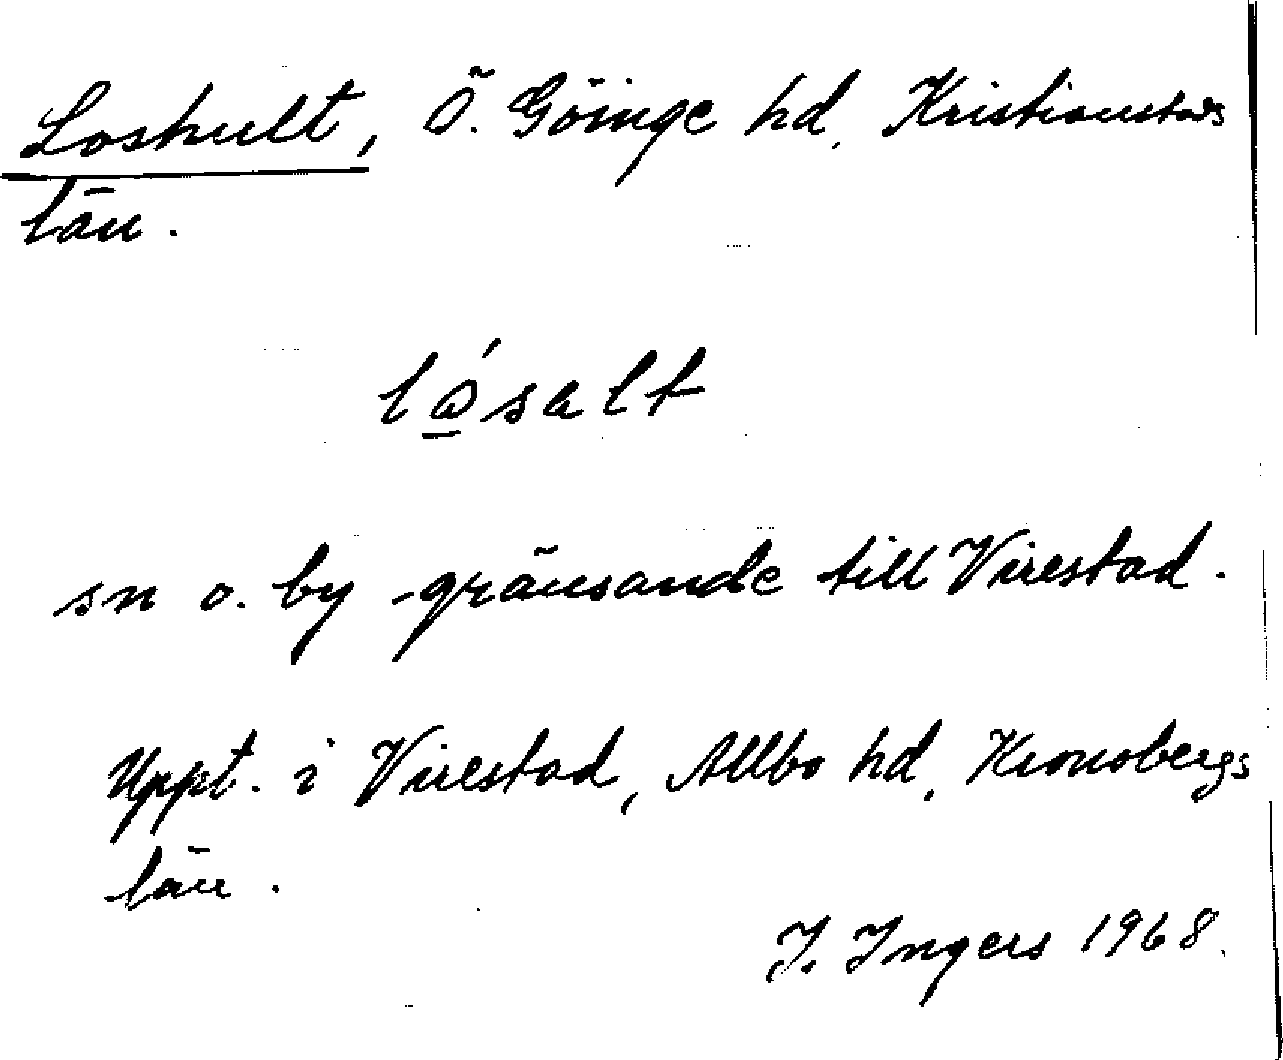 Loshult, Ö. Göinge hd, Kristianstads
län.
lǻsalt
sn o. by gränsande till Virestad.
Uppt. i Virestad, Allbo hd, Kronobergs
län.
I. Ingers 1968.